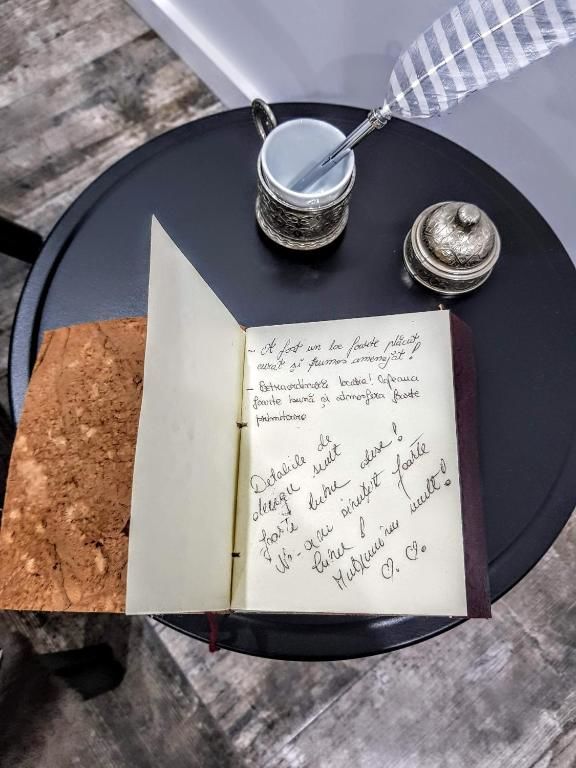 - A fost un loc foarte plăcut
curat și frumos amenajat!
- Extraordinară locația! Cafeaua
foarte bună și atmosfera foarte
primitoare
Detaliile de
design sunt
foarte bine alese!
M-am simțit foarte
bine!
Mulțumim mult!